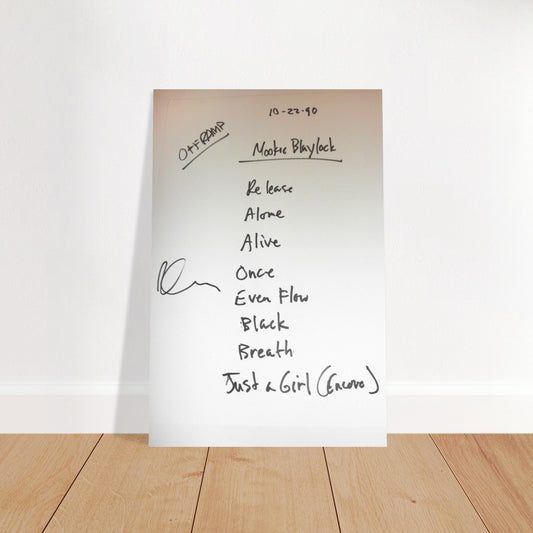 10-22-90
OFFRAMP
Mookie Blaylock
Release
Alone
Alive
Once
Even Flow
Black
Breath
Just a Girl (Encore)